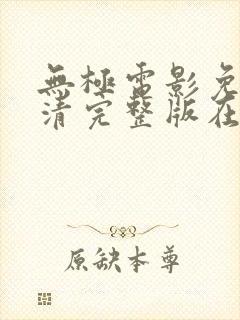 無極電影免
清完整版在
原缺本尊